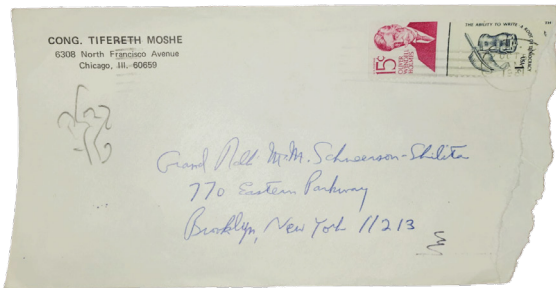 CONG. TIFERETH MOSHE
6308 North Francisco Avenue
Chicago, Ill. 60659
15c
OLIVER
WENDELL
HOLMES
THE ABILITY TO WRITE. A ROOT OF DEMOCRACY
USA 1c
Grand Rabbi M.M. Schneerson-Shlita
770 Eastern Parkway
Brooklyn, New York 11213